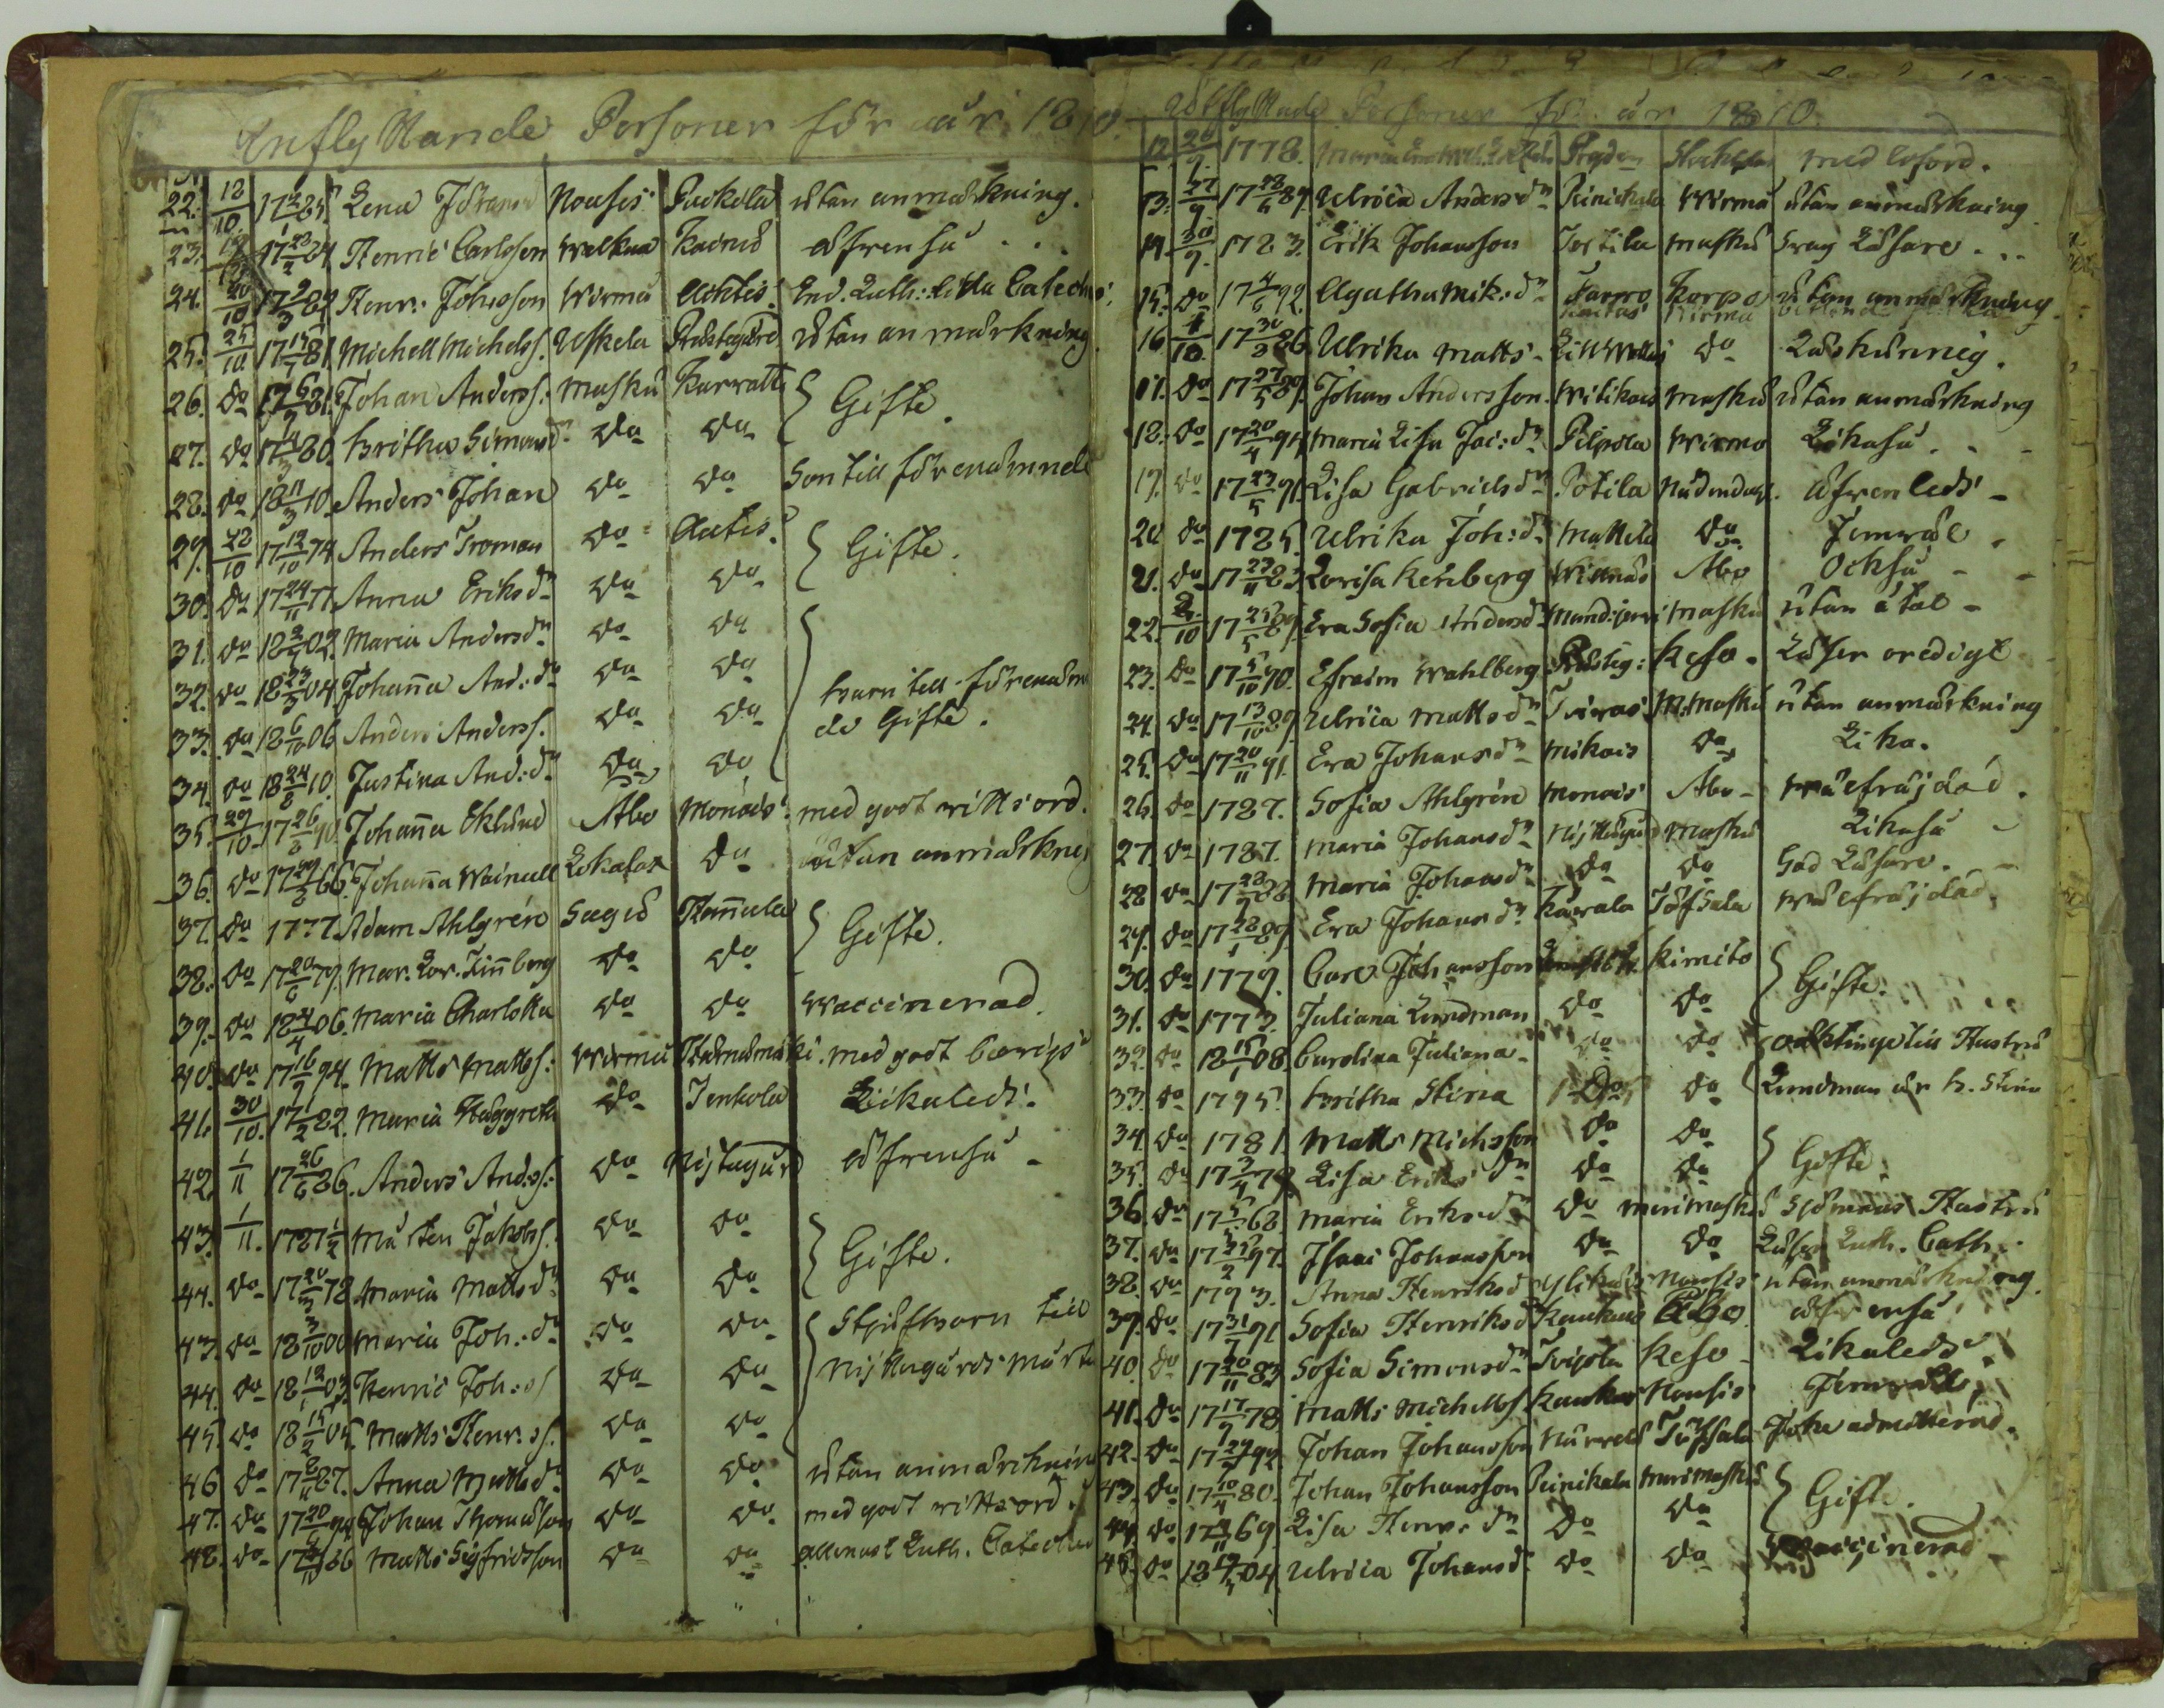 Inflyttande Personer för år 1810.
22. 12/10. 17 2/1 85. Lena Johansd Nousis Puckola utan anmärkning.
23. 17 23/2 84 Henric Carlsson Walkua Kairis äfvenså
24. 20/10 17 9/3 89 Henr: Johansson Wirmo Ahtis. End. Luth: Lilla Cateches;
25. 25/10. 17 15/7 81 Michell Michelss. Uskela Prästegård utan anmärkning
26. do 17 6/9 81. Johan Anderss. Masku Karvatti } Gifte.
27. do 17 14/3 80. Britha Simonsdr do do
28. do 18 11/3 10. Anders Johan do do Son till förenämnde
29. 28/10 17 12/10 74 Anders Troman do Autis. } Gifte.
30. do 17 24/11 77. Anna Eriksdr do do
31. do 18 2/5 02. Maria Andersdr do do
32. do 18 23/3 04 Johanna And:dr do do } barn till förenämn
33. do 18 6/10 06 Anders Anderss. do do de Gifte.
34. do 18 24/8 10. Justina And:dr do do
35. 29/10. 17 26/6 90. Johanna Eklund Abo Monois med godt vittsord.
36. do 17 29/3 66. Johanna Wainell Lokalax do utan anmärkning
37. do 1777. Adam Ahlgrén Sagu Hannula } Gifte.
38. do 17 20/6 79. Mar. Lov. Finnberg do do
39. do 18 4/4 06. Maria Charlotta do do Waccinerad.
40. do 17 16/9 94. Matts Mattss: Wirmo Hurnamäki. med godt beröm
41. 30/10. 17 1/2 82. Maria Häggroth do Jenkola Likaledes.
42. 1/11 17 26/6 86. Anders Anderss: do Nystugur äfvenså
43. 1/11. 1787 1/2 Mårten Jakobss. do do } Gifte.
44. do 17 20/3 78 Maria Mattsdr do do
43. do 18 3/10 00 Maria Joh:dr do do } Stjufbarn till
44. do 18 12/1 03. Henric Joh:ss do do Nystugurds Mårte
45. do 18 15/2 05. Matts Henr:ss. do do
46 do 17 8/11 87. Anna Mattsdr. do do utan anmärkning
47. do 17 20/6 94 Johan Thomasson do do med godt vittsord.
48. do 17 86 Matts Sigfridsson do do allenast Luth. Cateches
Utflyttade Personer för år 1810.
12. 26/9. 1778. Maria Stockholm med loford.
13. 27/9. 17 28/6 89. Ulrica Andersdr Peinikala Wirmo utan anmärkning
14. 30/9. 1783. Erik Johansson Tortila Masku Svag Läsare.
15. do 17 4/6 92. Agatha Mik:dr Farro Korpo utan anmärkning
16 1/10 17 30/9 86 Ulrika Matts do Läskunnig.
17. do 17 27/5 89. Johan Andersson. Witikais Masku utan anmärkning
18. do 17 20/4 94 Maria Lisa Jac:dr Pilpola Wirmo Likaså
19. do 17 29/5 91. Lisa Gabrielsdr Potila Nådendahl. äfvenledes
20 do 1785. Ulrika Joh:dr Mattila do Jemväl
21. do 17 23/11 83 Lovisa Kekberg Willnäs Abo Också
22. 2/10 17 25/5 89. Eva Sofia Andersdr Mandijervi Masku utan åtal
23. do 17 5/10 90. Efraim Wahlberg Prästeg: Keso. Läser oredigt
24. do 17 13/10 89. Ulrica Mattsdr Tvivais M:Masku utan anmärkning
25. do 17 20/11 91. Eva Johansdr Mikois do Lika.
26. do 1787. Sofia Ahlgrén Monois Abo wälfräjdad.
27. do 1787. Maria Johansdr Nystugur Masku Likaså
28 do 17 28/7 88 Maria Johansdr do do God Läsare.
29. do 17 28/1 89. Eva Johansdr Kärvala Töfsala wälfräjdad.
30. do 1779. Carl Johansson Kimito } Gifte.
31. do 1773. Juliana Lundman do do
32. do 18 15/1 08. Carolina Juliana do do oäkting till Hustru
33. do 1795. Britha Stina do do Lundman är b. Stina
34. do 1781. Matts Michsson do do } Gifte.
35. do 17 2/4 78 Lisa Eriksdr do do
36. do 17 5/5 68 Maria Eriksdr do Merimasku Sjömans Hustru
37. do 17 25/2 97. Isaac Johansson do do Läser Luth. Cath.
38. do 1793. Anna Henriksdr Nousis utan anmärkning.
39. do 17 31/7 91 Sofia Henriksdr Kaukas Åbo äfvenså
40. do 17 20/11 83 Sofia Simonsdr Tvijola Keso Likaledes
41. do 17 17/9 78 Matts Michelss. Kaukas Nousis Jemväl
42. do 17 29/7 92. Johan Johansson Nurvels Töfsala Icke admitterad.
43. do 17 10/4 80. Johan Johansson Peinikala Merimasku } Gifte.
44. do 17 9/11 69. Lisa Henr:dr Do do
45. do 18 19/5 04. Ulrica Johansd. do do Waccinerad